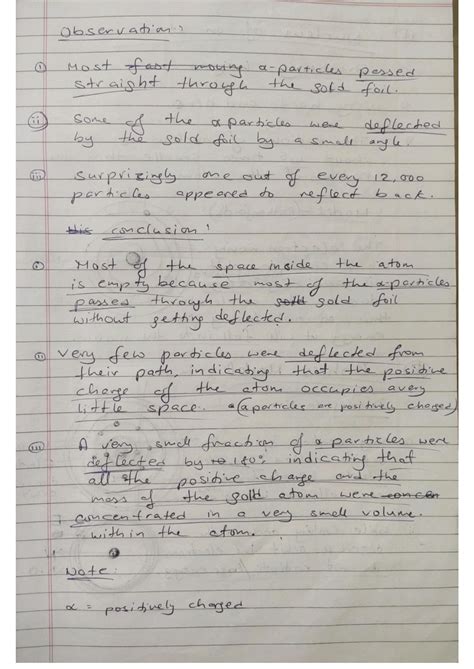 Observation:
(i) Most fast moving α-particles passed
straight through the gold foil.
(ii) Some of the α particles were deflected
by the gold foil by a small angle.
(iii) Surprisingly one out of every 12,000
particles appeared to reflect back.
His conclusion:
(i) Most of the space inside the atom
is empty because most of the α-particles
passed through the gold gold foil
without getting deflected.
(ii) Very few particles were deflected from
their path, indicating that the positive
charge of the atom occupies a very
little space. (α particles are positively charged)
(iii) A very small fraction of α particles were
deflected by to 180°, indicating that
all the positive charge and the
mass of the gold atom were concen
concentrated in a very small volume.
within the atom.
Note:
α = positively charged